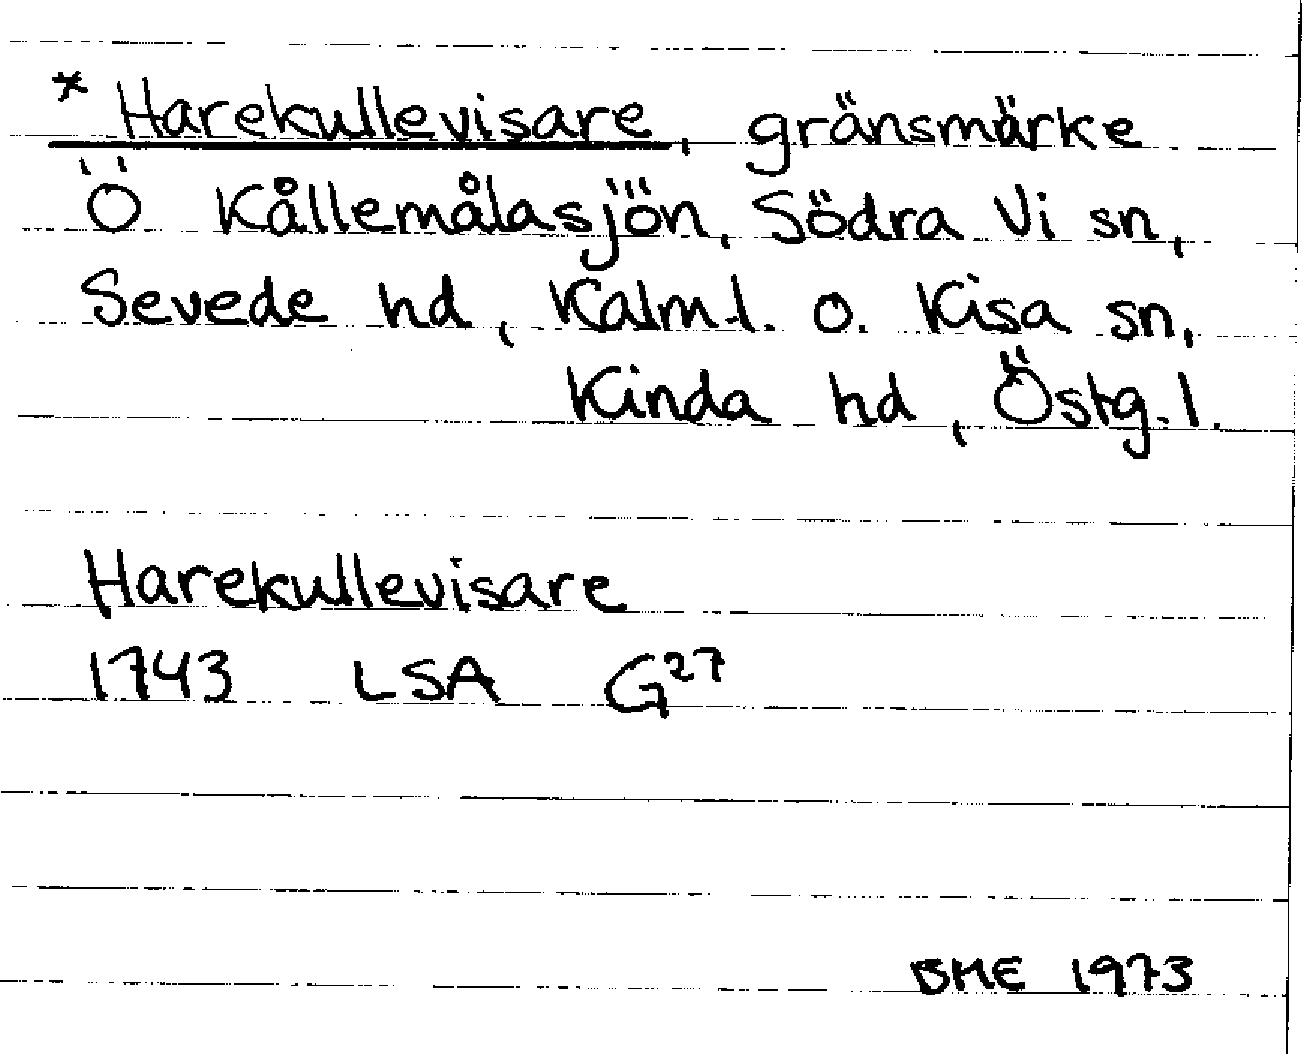 * Harekullevisare, gränsmärke
Ö Kållemålasjön, Södra Vi sn,
Sevede hd, Kalm.l. o. Kisa sn,
Kinda hd, Östg.l.
Harekullevisare
1743 LSA G27
BME 1973